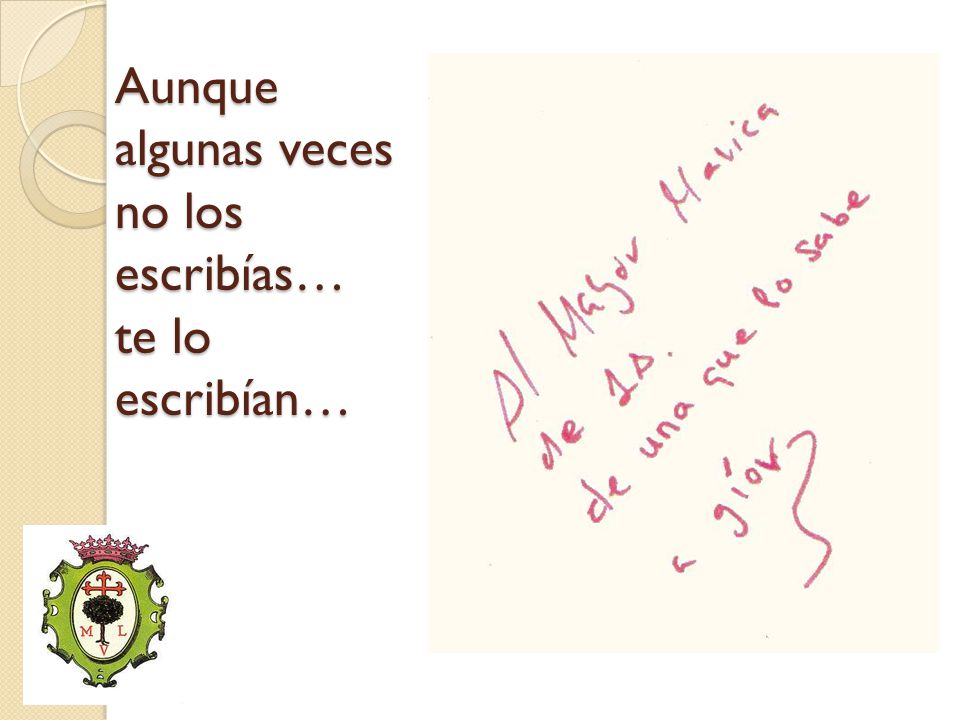 Aunque
algunas veces
no los
escribías…
te lo
escribían…
Al Magor Marica
de 1D.
de una que lo sabe
a
M L
V